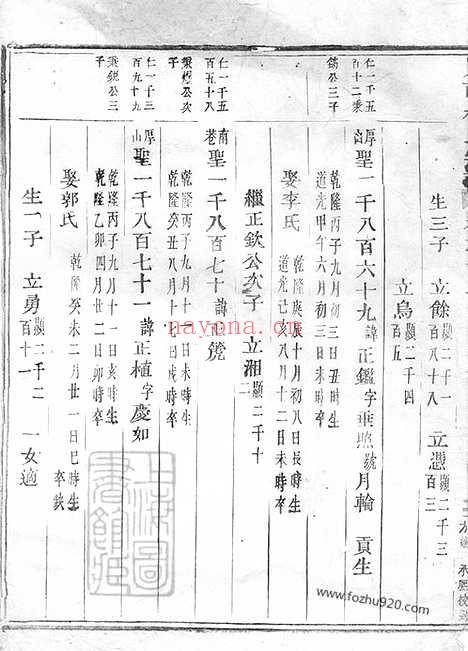 生三子 立餘顯二千一百八十八 立憑顯二千三百三
立鳥顯二千四百五
仁一千五百十二秉錫公三子
厚山聖一千八百六十九諱正鑑字秉照號月輪 貢生
乾隆丙子九月初三日丑時生
道光甲午六月初三日未時卒
娶李氏 乾隆庚辰十月初八日長時生
道光己亥八月十二日未時卒
繼正欽公次子 立湘顯二千十二
仁一千五百五十八秉煜公次子
南巷聖一千八百七十諱正
乾隆丙子九月十一日亥時生
乾隆癸亥二月十七日戌時卒
仁一千三百九十九秉銳公三子
厚山聖一千八百七十一諱正植字慶如
乾隆丙子九月十一日亥時生
乾隆乙卯四月廿二日卯時卒
娶郭氏 乾隆癸未二月廿一日巳時生
卒缺
生一子 立勇顯二千二百十一 一女適
上海圖書館藏
nayona.cn
www.fozhu920.com